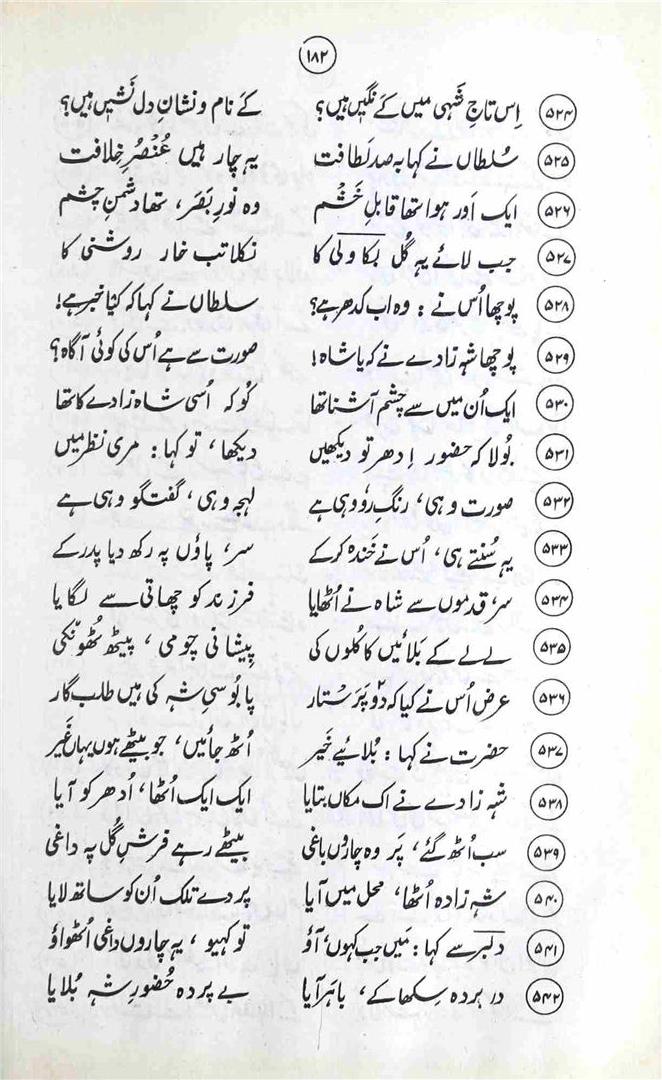 ۱۸۲
۵۲۴ اِس تاجِ شَہی میں کے نگیں ہیں؟ کے نام و نشانِ دل نَشیں ہیں؟
۵۲۵ سُلطاں نے کہا بہ صد لَطافت یہ چار ہیں عُنْصُرِ خِلافت
۵۲۶ ایک اَور ہوا تھا قابلِ خَشْم وہ نورِ بَصَر، تھا دشمنِ چشم
۵۲۷ جب لائے یہ گُل بکاولی کا نکلا تب خار روشنی کا
۵۲۸ پوچھا اُس نے : وہ اب کدھر ہے؟ سلطاں نے کہا کہ کیا خبر ہے!
۵۲۹ پوچھا شہ زادے نے کہ یا شاہ! صورت سے ہے اُس کی کوئی آگاہ؟
۵۳۰ ایک اُن میں سے چشم آشنا تھا کُوکہ اُسی شاہ زادے کا تھا
۵۳۱ بُولا کہ حضور اِدھر تو دیکھیں دیکھا، تو کہا : مری نظر میں
۵۳۲ صورت وہی، رنگِ رُو وہی ہے لہجہ وہی، گفتگو وہی ہے
۵۳۳ یہ سُنتے ہی، اُس نے خَندہ کر کے سر، پاؤں پہ رکھ دیا پدر کے
۵۳۴ سر، قدموں سے شاہ نے اُٹھایا فرزند کو چھاتی سے لگایا
۵۳۵ لے لے کے بَلائیں کاکُلوں کی پیشانی چومی، پیٹھ ٹھونْکی
۵۳۶ عرض اُس نے کیا کہ دو پَرَسْتار پابُوسیِ شہ کی ہیں طلب گار
۵۳۷ حضرت نے کہا : بُلائیے خَیر اُٹھ جائیں، جو بیٹھے ہوں یہاں غَیر
۵۳۸ شہ زادے نے اک مکاں بتایا ایک ایک اُٹھا، اُدھر کو آیا
۵۳۹ سب اُٹھ گئے، پَر وہ چاروں باغی بیٹھے رہے فرشِ گُل پہ داغی
۵۴۰ شہ زادہ اُٹھا، محل میں آیا پردے تلک اُن کو ساتھ لایا
۵۴۱ دلبر سے کہا : مَیں جب کہوں، آؤ تو کہیو، یہ چاروں داغی اُٹھواؤ
۵۴۲ در پردہ سِکھا کے، باہر آیا بے پردہ حُضورِ شہ بُلایا